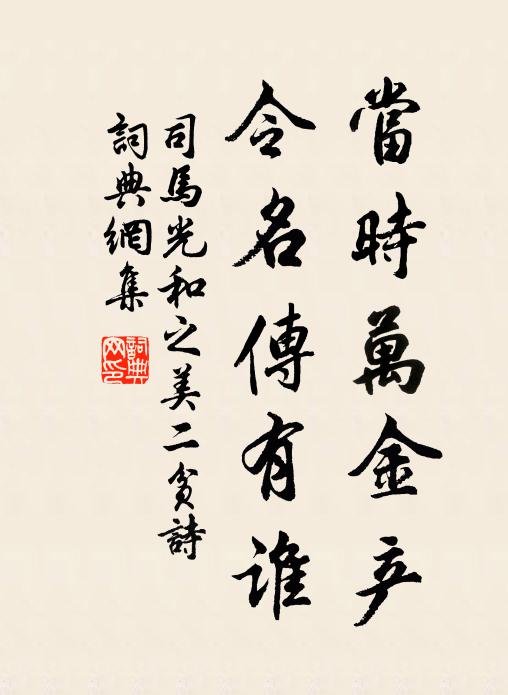 當時萬金产
令名傳有誰
司馬光和之美二贫詩
詞典網集
詞典網印